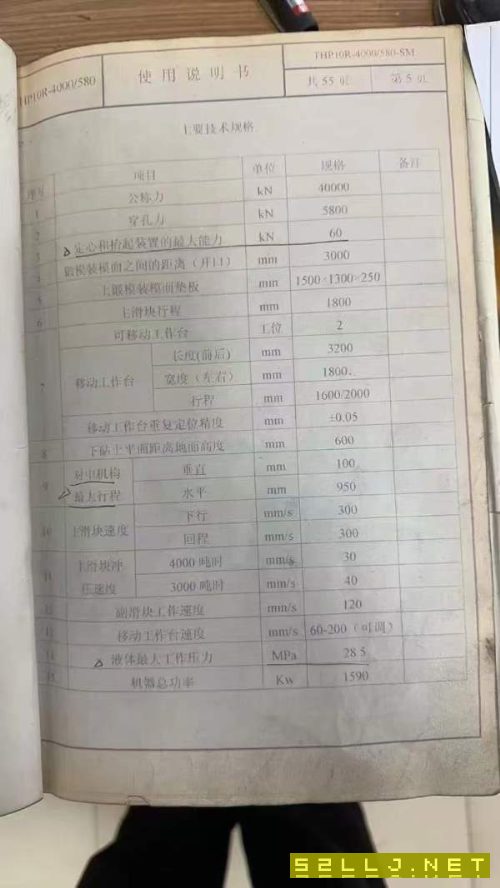 THP10R-4000/580 使用说明书 THP10R-4000/580-SM
共 55 页 第 5 页
主要技术规格
序号 项目 单位 规格 备注
1 公称力 kN 40000
2 穿孔力 kN 5800
3 定心和抬起装置的最大能力 kN 60
4 锻模装模面之间的距离（开口） mm 3000
5 上锻模装模面垫板 mm 1500×1300×250
6 主滑块行程 mm 1800
可移动工作台 工位 2
移动工作台 长度(前后) mm 3200
宽度（左右） mm 1800
行程 mm 1600/2000
移动工作台重复定位精度 mm ±0.05
8 下砧上平面距离地面高度 mm 600
9 对中机构 垂直 mm 100
最大行程 水平 mm 950
10 主滑块速度 下行 mm/s 300
回程 mm/s 300
11 主滑块冲 4000 吨时 mm/s 30
压速度 3000 吨时 mm/s 40
12 副滑块工作速度 mm/s 120
13 移动工作台速度 mm/s 60-200（可调）
14 液体最大工作压力 MPa 28.5
15 机器总功率 Kw 1590
52LLJ.NET